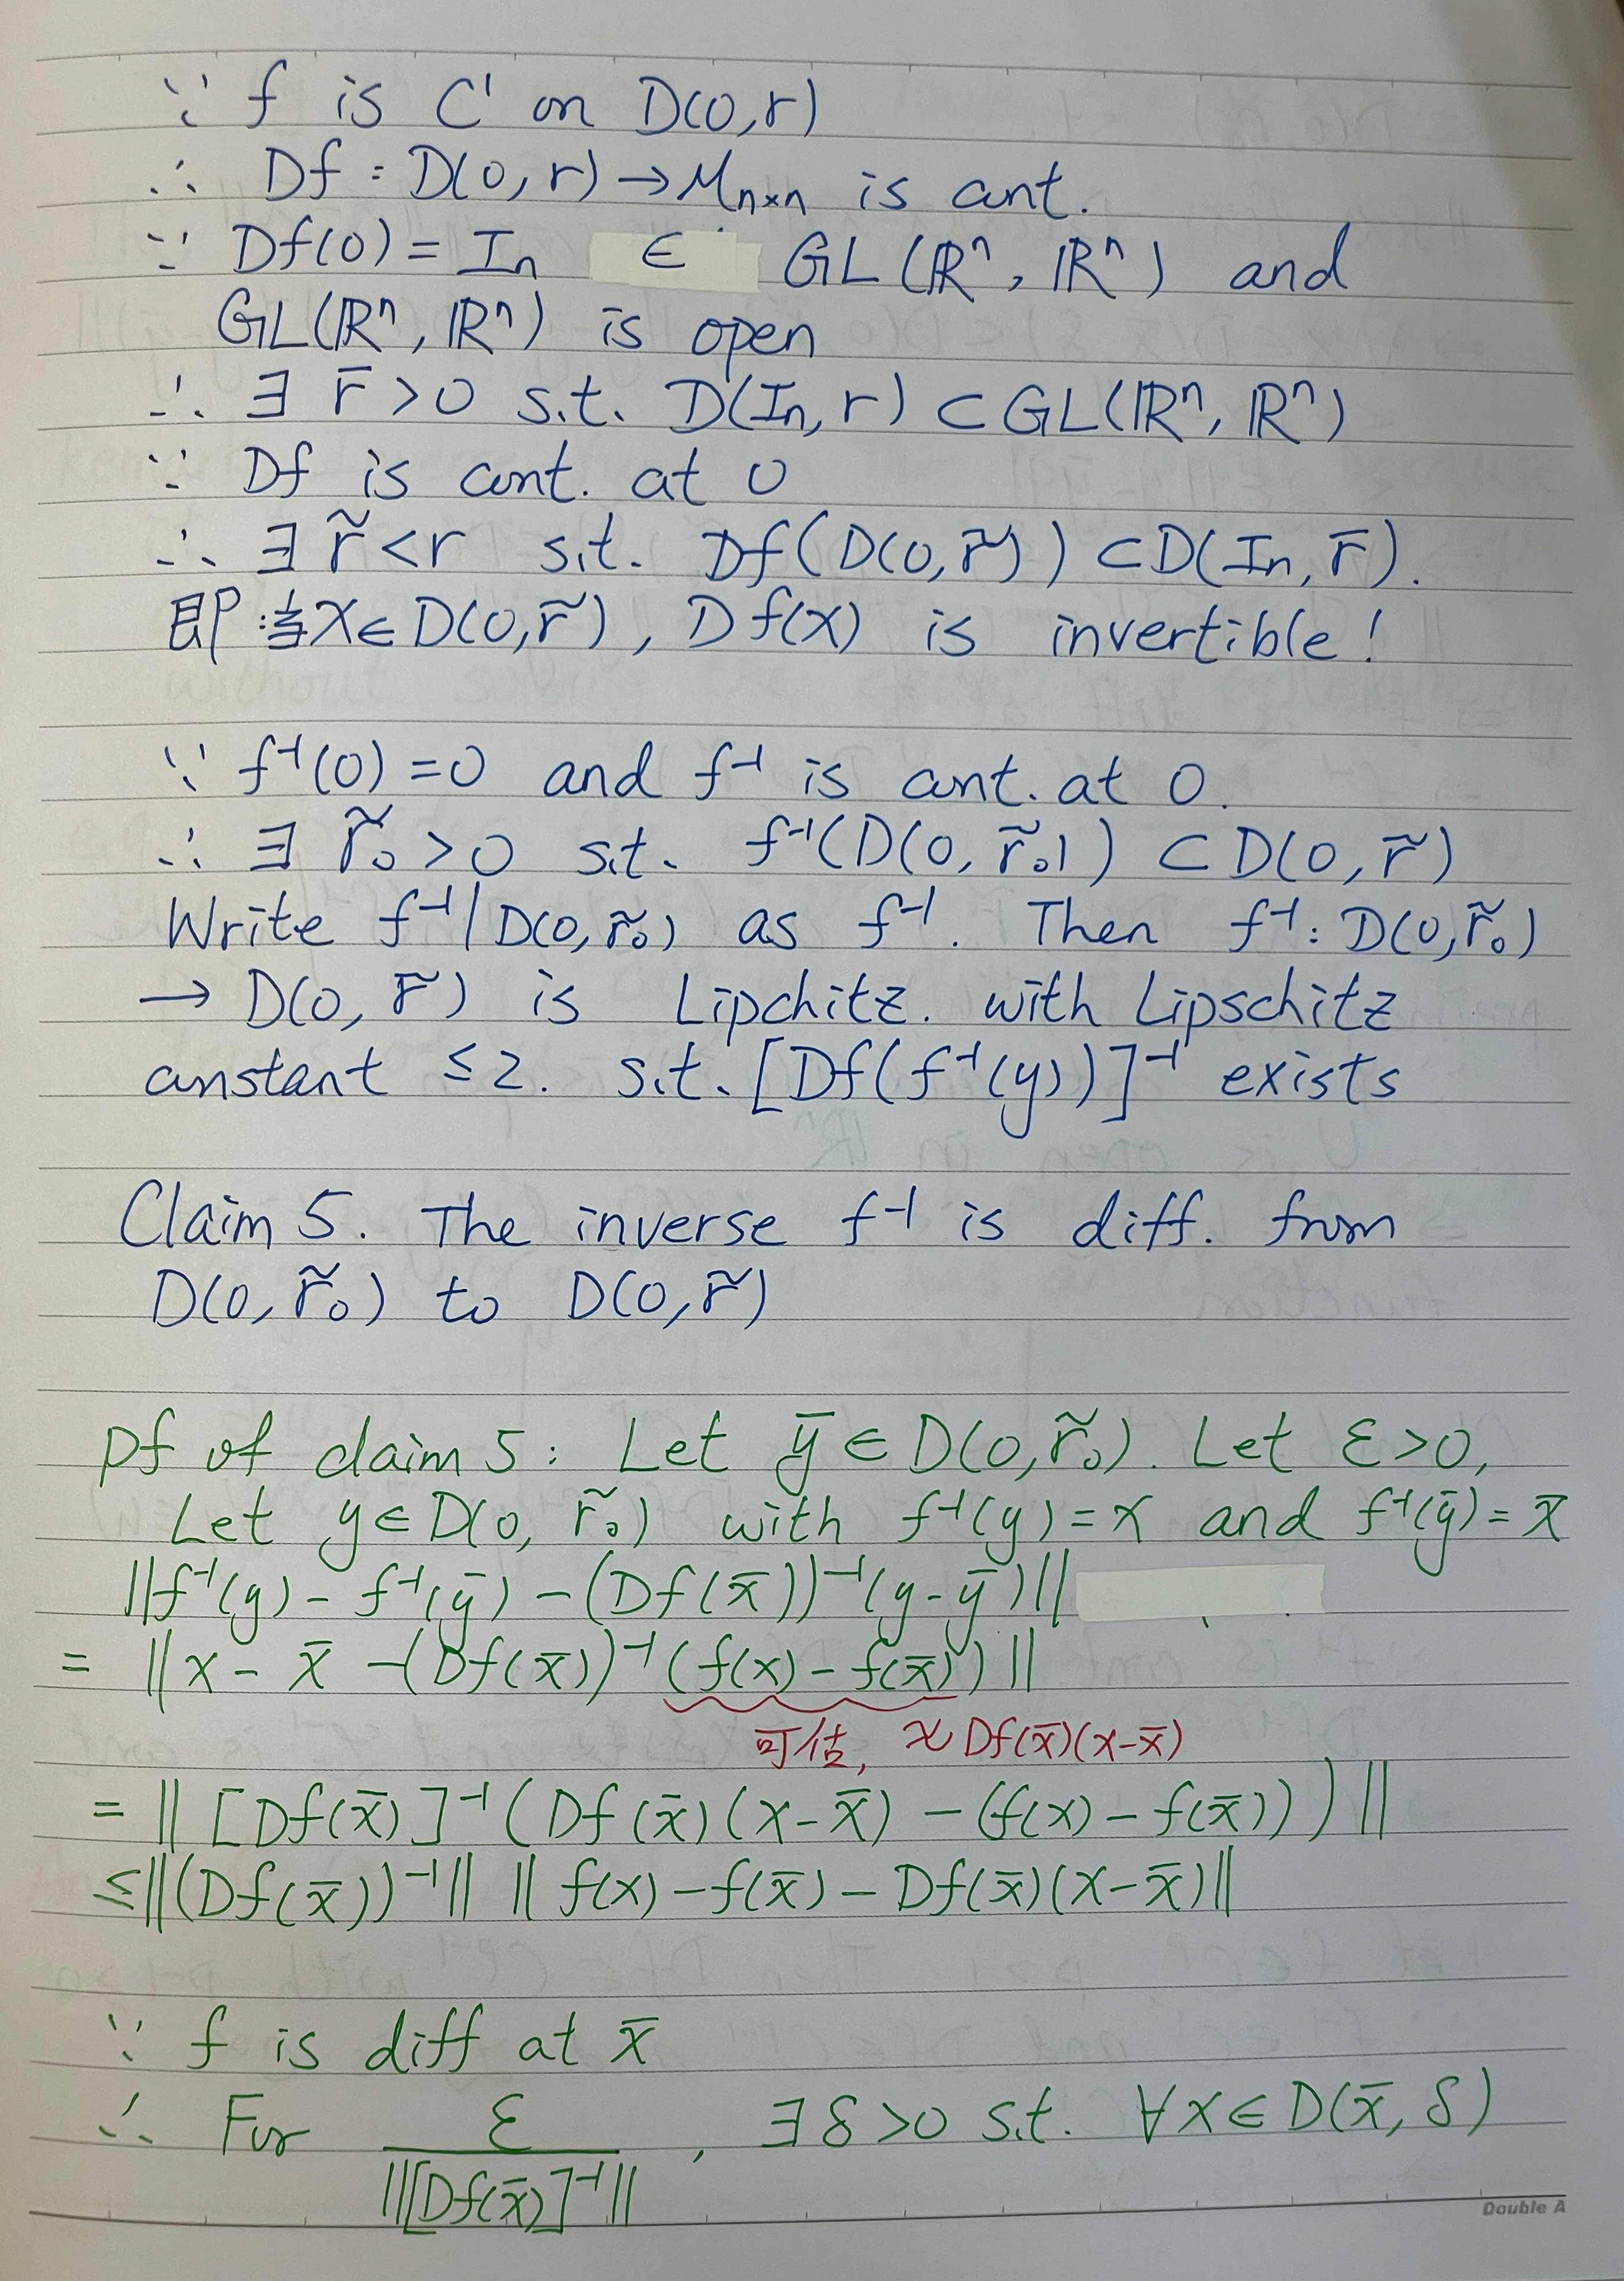 ∵ f is C' on D(0,r)
∴ Df : D(0,r) → M_{n×n} is cont.
∵ Df(0) = In ∈ GL(ℝⁿ, ℝⁿ) and
GL(ℝⁿ, ℝⁿ) is open
∴ ∃ r̄ > 0 s.t. D(In, r) ⊂ GL(ℝⁿ, ℝⁿ)
∵ Df is cont. at 0
∴ ∃ r̃ < r s.t. Df(D(0, r̃)) ⊂ D(In, r̄).
即:当x∈D(0,r̃), Df(x) is invertible!
∵ f⁻¹(0) = 0 and f⁻¹ is cont. at 0.
∴ ∃ r̃₀ > 0 s.t. f⁻¹(D(0, r̃₀)) ⊂ D(0, r̃)
Write f⁻¹|D(0,r̃₀) as f⁻¹. Then f⁻¹: D(0,r̃₀)
→ D(0, r̃) is Lipchitz. with Lipschitz
constant ≤ 2. s.t. [Df(f⁻¹(y))]⁻¹ exists
Claim 5. The inverse f⁻¹ is diff. from
D(0, r̃₀) to D(0, r̃)
pf of claim 5 : Let ȳ ∈ D(0, r̃₀). Let ε > 0,
Let y ∈ D(0, r̃₀) with f⁻¹(y) = x and f⁻¹(ȳ) = x̄
||f⁻¹(y) - f⁻¹(ȳ) - (Df(x̄))⁻¹(y-ȳ)||
= ||x - x̄ - (Df(x̄))⁻¹(f(x) - f(x̄))||
可估, ≈ Df(x̄)(x-x̄)
= ||[Df(x̄)]⁻¹(Df(x̄)(x-x̄) - (f(x) - f(x̄)))||
≤ ||(Df(x̄))⁻¹|| ||f(x) - f(x̄) - Df(x̄)(x-x̄)||
∵ f is diff at x̄
∴ For ε / ||[Df(x̄)]⁻¹||, ∃ δ > 0 s.t. ∀ x ∈ D(x̄, δ)
Double A